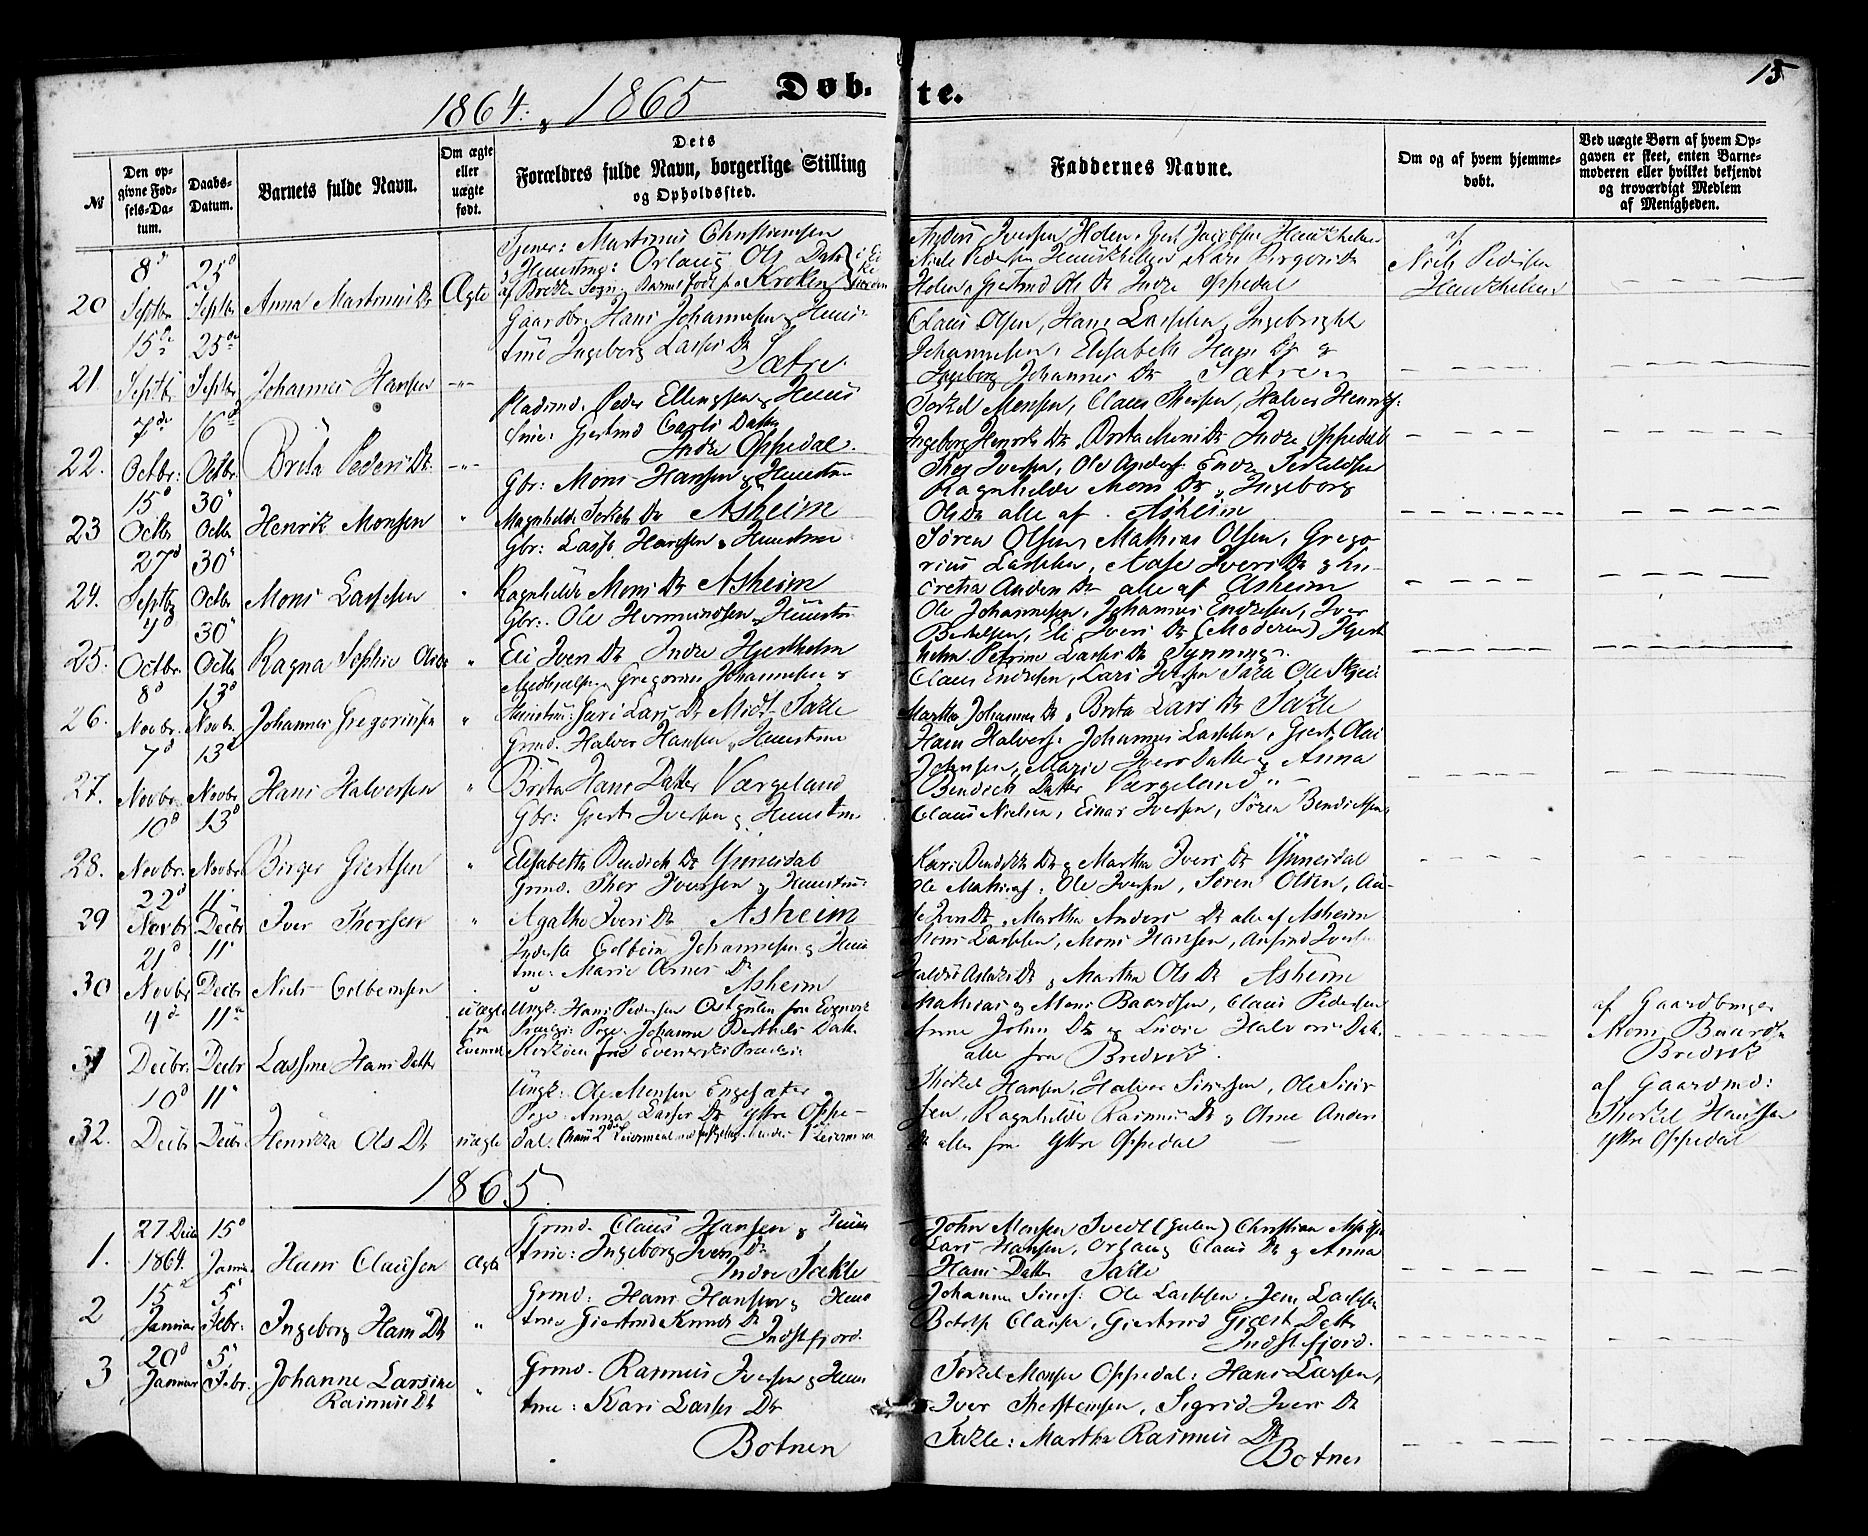 1864. & 1865
Døb-te.
15
No
Den opgivne Fødsels-Datum.
Daabs-Datum.
Barnets fulde Navn.
Om ægte eller uægte født.
Dets Forældres fulde Navn, borgerlige Stilling og Opholdssted.
Faddernes Navne.
Om og af hvem hjemmedøbt.
Ved uægte Børn af hvem Opgaven er skeet, enten Barnemoderen eller hvilket bekjendt og troværdigt Medlem af Menigheden.
20 8d Septbr 25d Septbr Anna Martinus Dr Ægte
Tjener: Martinus Christiansen
& Huustrue: Orlaug Ols Datr
af Brekke Sogn, Barnet født paa Kroken
Anders Iversen Holen, Giert Jacobsen Haukhellen
Niels Pedersen Haukhellens Kari Birgeris Dr
Holen, Giertrud Ols Dr Indre Oppedal
af Niels Pedersen Haukhellens
21. 15de Septbr 25de Septbr Johannes Hansen -"-
Gaardbr. Hans Johannesen & Huus-
true Ingeborg Lasses Dr
Sætre.
Claus Olsen, Hans Lassesen, Ingebright
Johannesen, Elisabeth Hans Dr &
Ingeborg Johannes Dr Sætren
22. 7de Octbr: 16d Octbr. Brita Peders Dr. -"-
Pladsmd. Peder Ellingsen & Huus
true: Giertrud Carls Datter
Indre Oppedal.
Torkel Monsen, Claus Thersen, Halver Henriks.
Ingeborg Henriks Dr, Brita Mons Dr Indre Oppedal
23 15d Octbr 30' Octbr Henrik Monsen "
Gbr: Mons Hansen & Huustru
Magnhilde Torkels Dr Asheim
Thor Iversen, Ole Anders. Endre Torkeldsen
Ragnhilde Mons Dr, Ingeborg
Ols Dr alle af Asheim
24. 27d Septbr 30' Octbr Mons Lassesen "
Gbr: Lasse Hansen & Huustrue
Ragnhilde Mons Dr Asheim
Søren Olsen, Mathias Olsen, Grego
rius Lassesen, Aase Ivers Dr & Lu-
cretia Anders Dr alle af Asheim
25. 4d Octbr. 30' Octbr Ragna Sophie Olsdr "
Gbr.. Ole Hermundsen & Huustru
Eli Ivers Dr Indre Hjertholm
Ole Johannesen, Johannes Endresen, Iver
Bertelsen, Eli Ivers Dr (Moderen) Hjert
holm Petrine Lasses Dr Tynning.
26. 8d Novbr. 13d Novbr. Johannes Gregoriusen "
Medhjelper Gregorius Johannesen &
Huustru: Guri Lars Dr Midt-Takle
Claus Endresen, Lars Iversen Takle Ole Skjer
Martha Johannes Dr, Brita Lars Dr Takle
27. 7d Novbr. 13d Novbr. Hans Halversen "
Grmd. Halver Hansen & Huustrue
Brita Hans Datter Værgeland
Hans Halvers. Johannes Lassesen, Giert Olai
Johansen, Marie Ivers Datter & Anna
Bendick Datter Værgeland "
28. 10d Novbr. 13d Novbr. Birger Giertsen "
Gbr: Giert Iversen & Huustru
Elisabeth Bendick Dr Ynnesdal
Claus Nielsen, Einar Iversen, Søren Bendicksen
Kari Bendick Dr & Martha Ivers Dr Ynnesdal
29 22d Novbr 11. Decbr Iver Thorsen "
Grmd. Thor Iversen & Huustru:
Agathe Ivers Dr Asheim
Ole Mathias. Ole Iversen, Søren Olsen,
Ivers Dr, Martha Anders Dr alle af Asheim
30 21d Novbr 11' Decbr Niels Colbensen
Inderste Colbein Johannesen & Huus
true: Marie Arnes Dr
Asheim
Mons Lassesen, Mons Hansen, Ansind Iversen
Martha Ols Dr Asheim
31 4d Decbr. 11te Decbr Lassine Hans Datter uægte fra Evenvik
Ungk. Hans Pedersen Østgulen fra Evenvik
Præstegj. Pige. Johanne Berthels Datter
fra Evenviks Præstegj.
Mathias & Mons Baardsen, Claus Pedersen
Anne Johns Dr og Lucie Halvors Datr.
alle fra Bredvik.
af Gaardbruger Mons Baardsen Bredvik
32. 10d Decbr 11' Decbr. Henrikka Ols Dr uægte
Ungk: Ole Monsen Engesæter
Pige: Anna Lasses Dr Yttre Oppe-
dal. Hans 2det Leiermaal hendes 1ste Leiermaal
Thorkel Hansen, Halver Siversen, Ole Siver
sen, Ragnhilde Rasmus Dr & Olina Anders
Dr alle fra Yttre Oppedal
af Gaardmd: Thorkel Hansen Yttre Oppedal
1865.
1. 27 Decbr 1864. 15d Januar Hans Claussen Ægte
Grmd. Claus Hansen & Huus
true: Ingeborg Ivers Dr
Indre Takle
John Monsen Tvedt (Gulen) Christian
Lars Hansen, Orlaug Claus Dr & Anna
Hans Datter Takle
2 15d Januar 5' Febr. Ingeborg Hans Dr "
Grmd: Hans Hansen & Huus
true Giertrud Knuds Dr
Indstefjord.
Johannes Simes. Ole Lassesen, Jens Lassesen
Botolf Clausen, Giertrud Giert Dattr
Indstefjord.
3 20d Januar 5' Febr. Johanne Larsine Rasmus Dr "
Grmd. Rasmus Iversen & Huus
true: Kari Lasses Dr
Botnen
Torkel Monsen Oppedal: Hans Larsen,
Iver Thorsteinsen, Sigrid Ivers Dr
Takle: Martha Rasmus Dr
Botnen